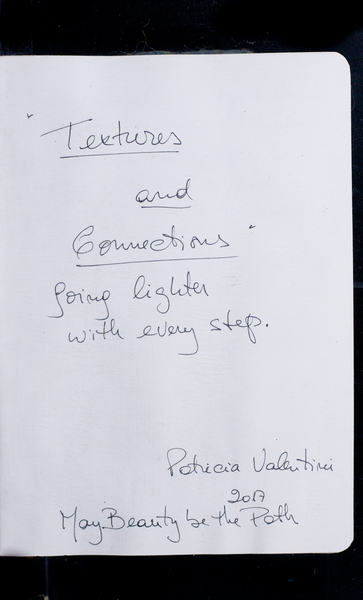 "Textures
and
Connections"
going lighter
with every step.
Patricia Valentini
2017
May Beauty be the Path